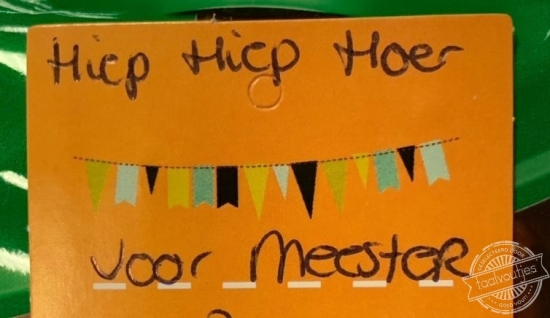 Hiep Hiep Hoer
voor Meester
taalvoutjes